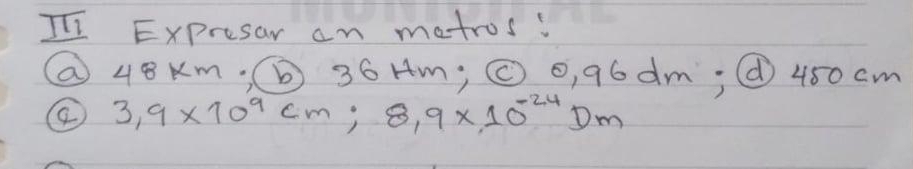 III Expresar en metros:
ⓐ 48 Km ; ⓑ 36 Hm; ⓒ 0,96 dm ; ⓓ 450 cm
ⓔ 3,9 × 10⁹ cm ; 8,9 × 10⁻²⁴ Dm